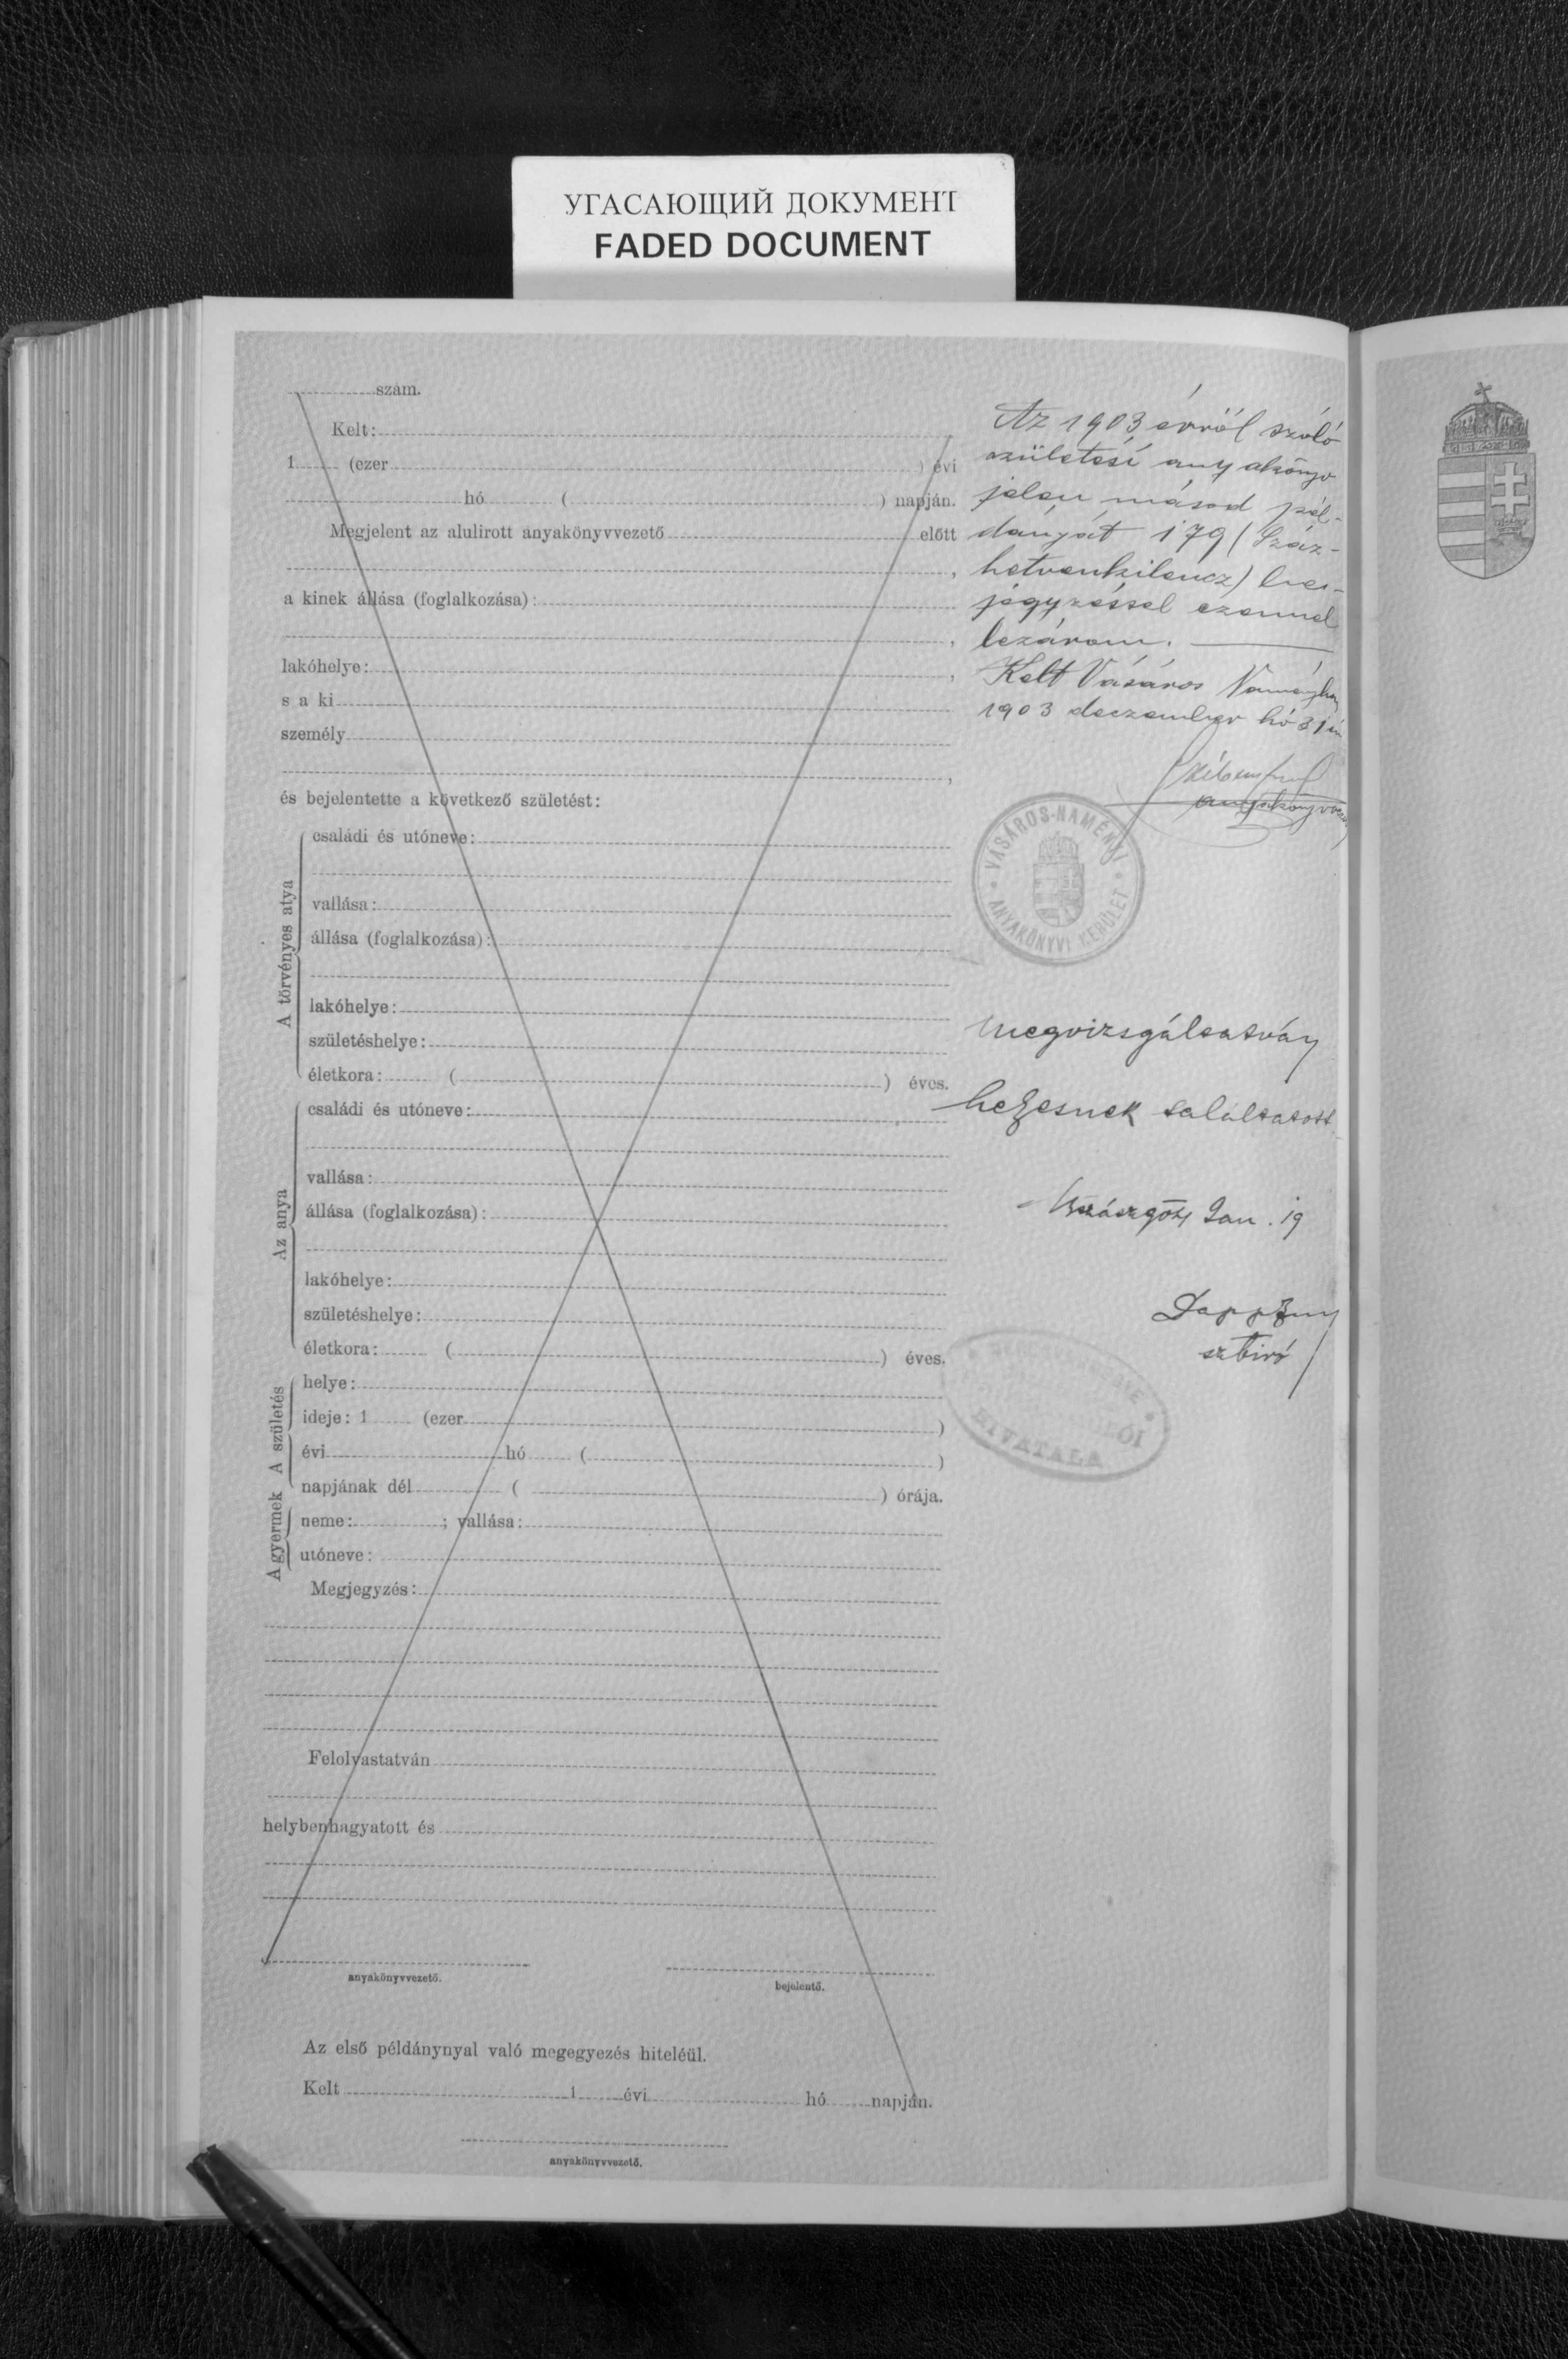 УГАСАЮЩИЙ ДОКУМЕНТ
FADED DOCUMENT
szám.
Kelt:
1 (ezer ) évi
hó ( ) napján.
Megjelent az alulirott anyakönyvvezető előtt
,
a kinek állása (foglalkozása):
,
lakóhelye: ,
s a ki
személy
,
és bejelentette a következő születést:
A törvényes atya
családi és utóneve:
vallása:
állása (foglalkozása):
lakóhelye:
születéshelye:
életkora: ( ) éves.
Az anya
családi és utóneve:
vallása:
állása (foglalkozása):
lakóhelye:
születéshelye:
életkora: ( ) éves.
A születés
helye:
ideje: 1 (ezer )
évi hó ( )
napjának dél ( ) órája.
A gyermek
neme: ; vallása:
utóneve:
Megjegyzés:
Felolvastatván
helybenhagyatott és
anyakönyvvezető.
bejelentő.
Az első példánynyal való megegyezés hiteléül.
Kelt 1 évi hó napján.
anyakönyvvezető.
Az 1903 évről szóló
születési anyakönyv
jelen másod pél-
dányát 179 (Száz-
hetvenkilencz) be-
jegyzéssel ezennel
lezárom.
Kelt Vásáros Naményban
1903 deczember hó 31 én
anyakönyvvezető
VÁSÁROS-NAMÉNYI
ANYAKÖNYVI KERÜLET
Megvizsgáltatván
helyesnek találtatott
Jan. 19
sztbiró
HIVATALA